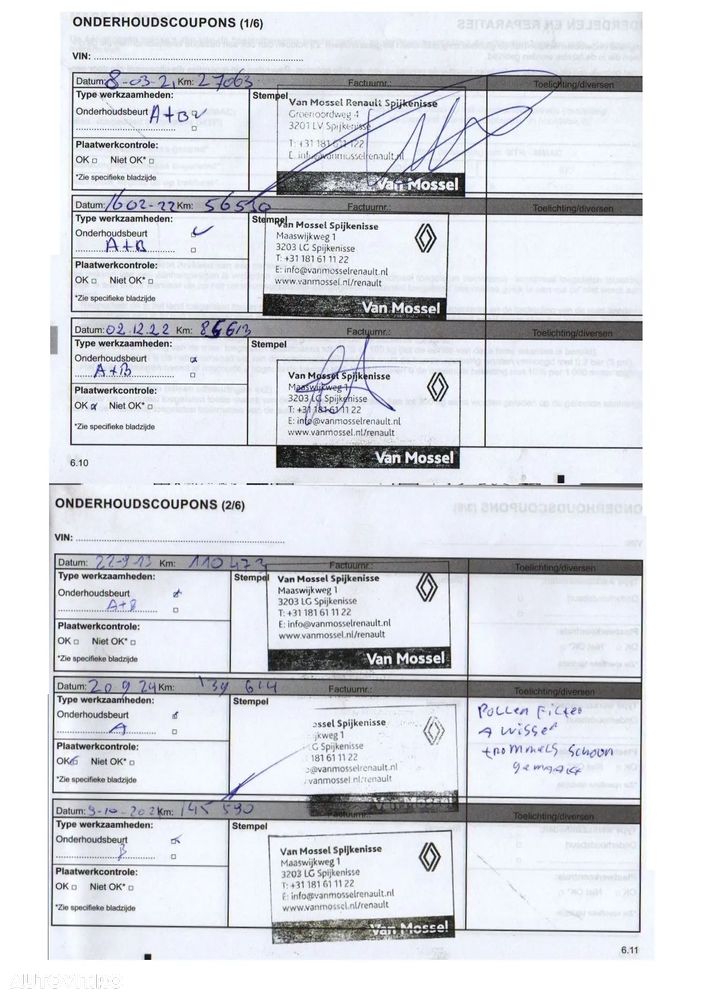 ONDERHOUDSCOUPONS (1/6)
VIN:
Datum: 8-03-21 Km: 27063 Factuurnr.: Toelichting/diversen
Type werkzaamheden: Stempel
Onderhoudsbeurt A+B
Plaatwerkcontrole:
OK Niet OK*
*Zie specifieke bladzijde
Van Mossel Renault Spijkenisse
Groenoordweg 4
3201 LV Spijkenisse
T: +31 181 61 1122
E: info@vanmosselrenault.nl
Van Mossel
Datum: 1602-22 Km: 56510 Factuurnr.: Toelichting/diversen
Type werkzaamheden: Stempel
Onderhoudsbeurt
A+B
Plaatwerkcontrole:
OK Niet OK*
*Zie specifieke bladzijde
Van Mossel Spijkenisse
Maaswijkweg 1
3203 LG Spijkenisse
T: +31 181 61 11 22
E: info@vanmosselrenault.nl
www.vanmosselrenault.nl
Van Mossel
Datum: 02.12.22 Km: Factuurnr.: Toelichting/diversen
Type werkzaamheden: Stempel
Onderhoudsbeurt
A+B
Plaatwerkcontrole:
OK Niet OK*
*Zie specifieke bladzijde
Van Mossel Spijkenisse
Maaswijkweg 1
3203 LG Spijkenisse
T: +31 181 61 11 22
E: info@vanmosselrenault.nl
www.vanmossel.nl/renault
Van Mossel
6.10
ONDERHOUDSCOUPONS (2/6)
VIN:
Datum: Km: 110473 Factuurnr.: Toelichting/diversen
Type werkzaamheden: Stempel
Onderhoudsbeurt
A+B
Plaatwerkcontrole:
OK Niet OK*
*Zie specifieke bladzijde
Van Mossel Spijkenisse
Maaswijkweg 1
3203 LG Spijkenisse
T: +31 181 61 11 22
E: info@vanmosselrenault.nl
www.vanmossel.nl/renault
Van Mossel
Datum: 20 9 24 Km: 139 614 Factuurnr.: Toelichting/diversen
Type werkzaamheden: Stempel
Onderhoudsbeurt
A
Plaatwerkcontrole:
OK Niet OK*
*Zie specifieke bladzijde
ossel Spijkenisse
jkweg 1
LG Spijkenisse
181 61 11 22
@vanmosselrenault.nl
vanmossel.nl/renault
Van Mossel
Pollen Filter
A wisser
trommels schoon
gemaakt
Datum: 9-10-202 Km: 145 590 Factuurnr.: Toelichting/diversen
Type werkzaamheden: Stempel
Onderhoudsbeurt
B
Plaatwerkcontrole:
OK Niet OK*
*Zie specifieke bladzijde
Van Mossel Spijkenisse
Maaswijkweg 1
3203 LG Spijkenisse
T: +31 181 61 11 22
E: info@vanmosselrenault.nl
www.vanmossel.nl/renault
Van Mossel
6.11
AUTOVIT.RO